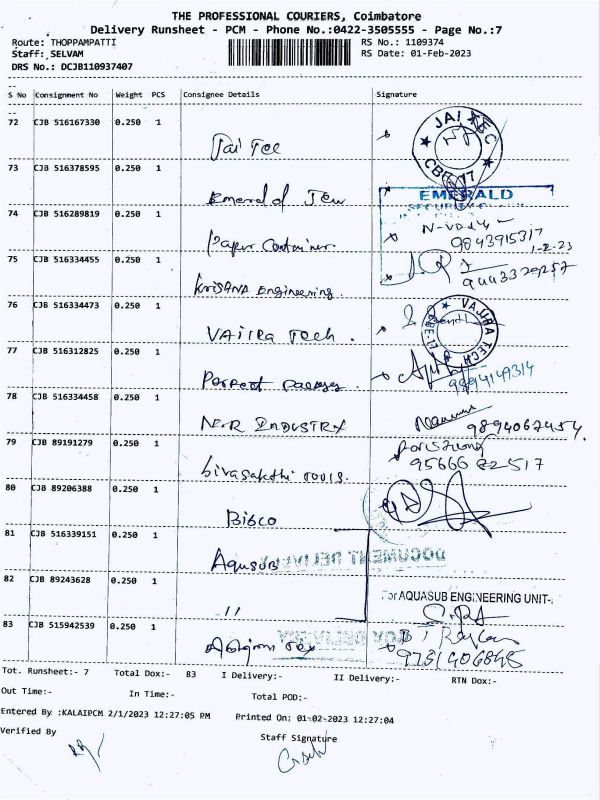 THE PROFESSIONAL COURIERS, Coimbatore
Delivery Runsheet - PCM - Phone No.:0422-3505555 - Page No.:7
Route: THOPPAMPATTI
Staff: SELVAM
DRS No.: DCJB110937407
RS No.: 1109374
RS Date: 01-Feb-2023
S No Consignment No Weight PCS Consignee Details Signature
72 CJB 516167330 0.250 1
Jai Tec
JAI TEC
CBE-17
73 CJB 516378595 0.250 1
Emerald Jew
EMERALD
74 CJB 516289819 0.250 1
Paper Container.
9843915317
1-2-23
75 CJB 516334455 0.250 1
Krisana Engineering.
9443329257
76 CJB 516334473 0.250 1
Vajra Tech.
VAJRA TECH
CBE-17
77 CJB 516312825 0.250 1
Perfect
9894149314
78 CJB 516334458 0.250 1
INDUSTRY
9894067454.
79 CJB 89191279 0.250 1
Sivasakthi Tools.
95666 82517
80 CJB 89206388 0.250 1
Bisco
81 CJB 516339151 0.250 1
Aqusub
DOCUMENT DELIVERY
82 CJB 89243628 0.250 1
"
For AQUASUB ENGINEERING UNIT-
83 CJB 515942539 0.250 1
BOX DELIVERY
9751406848
Tot. Runsheet:- 7 Total Dox:- 83 I Delivery:- II Delivery:- RTN Dox:-
Out Time:- In Time:- Total POD:-
Entered By :KALAIPCM 2/1/2023 12:27:05 PM Printed On: 01-02-2023 12:27:04
Verified By
Staff Signature